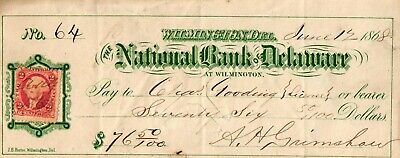 WILMINGTON, DEL. June 12 1868
No. 64
THE National Bank OF Delaware
AT WILMINGTON.
Pay to Chas Gooding or bearer
Seventy Six 20/100 Dollars.
$ 76 20/100 A. H. Grimshaw
J. B. Porter, Wilmington, Del.